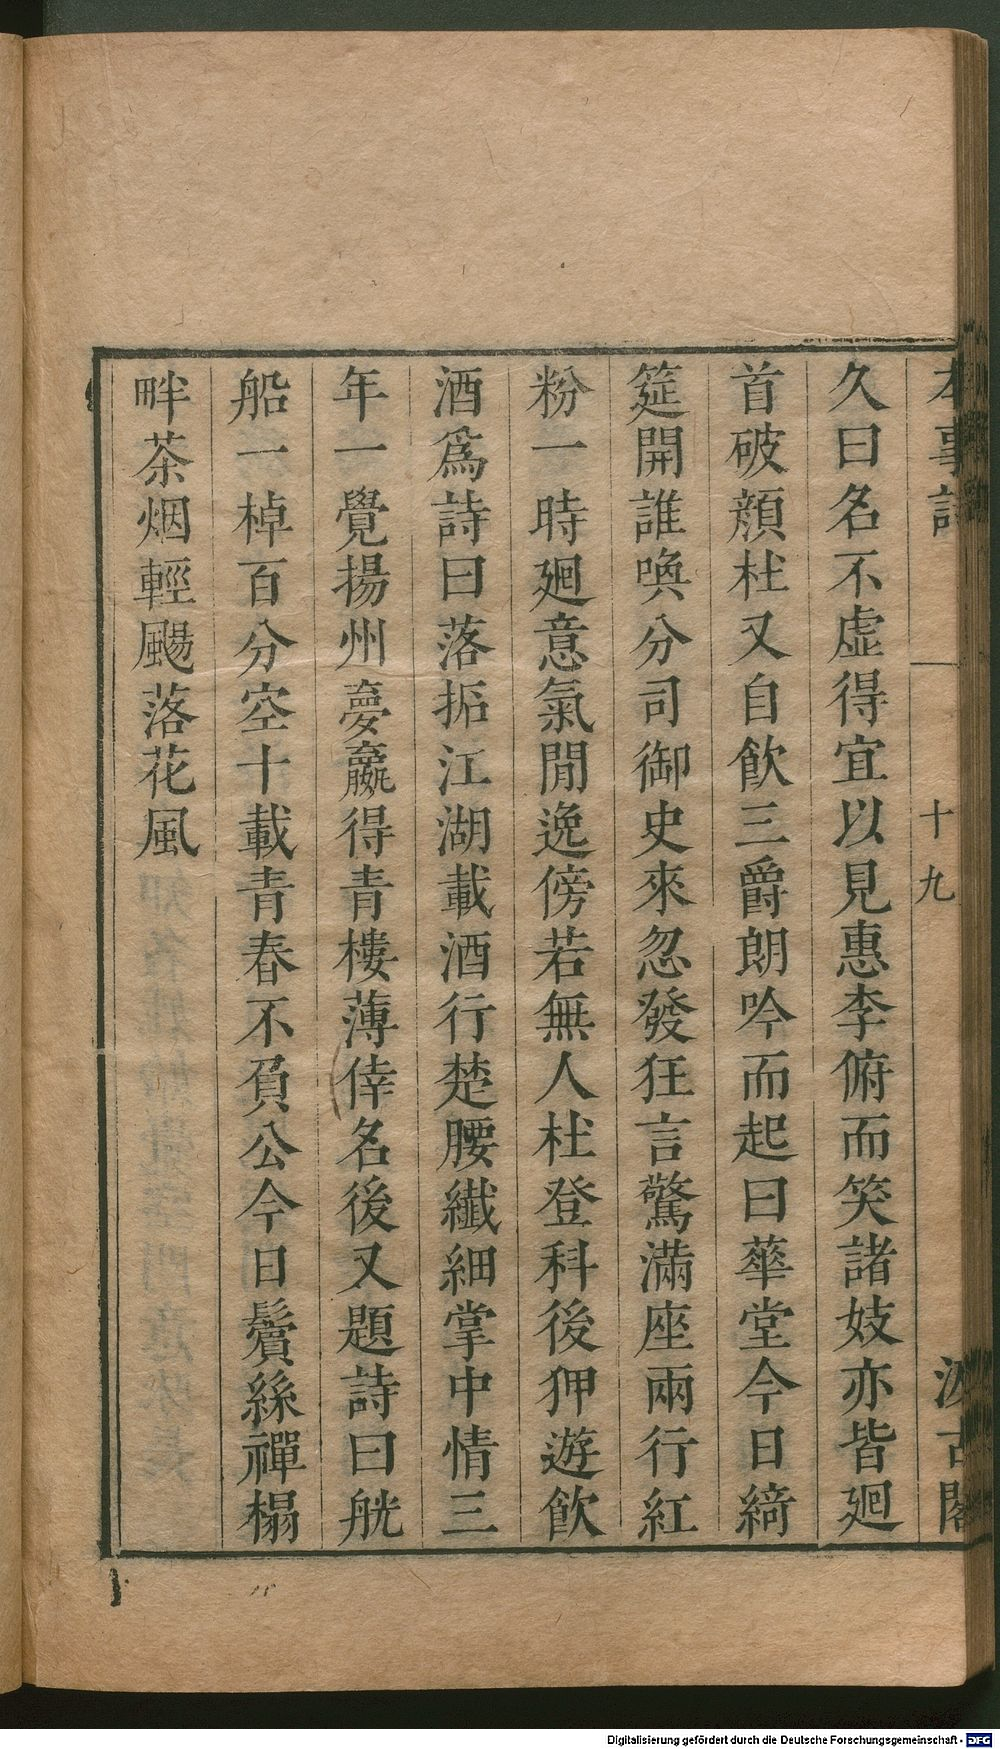 本事詩 十九 汲古閣
久曰名不虛得宜以見惠李俯而笑諸妓亦皆廻
首破顔杜又自飲三爵朗吟而起曰華堂今日綺
筵開誰喚分司御史來忽發狂言驚滿座兩行紅
粉一時廻意氣閒逸傍若無人杜登科後狎遊飲
酒爲詩曰落拓江湖載酒行楚腰纖細掌中情三
年一覺揚州夢贏得青樓薄倖名後又題詩曰觥
船一棹百分空十載青春不負公今日鬢絲禪榻
畔茶烟輕颺落花風
Digitalisierung gefördert durch die Deutsche Forschungsgemeinschaft - DFG